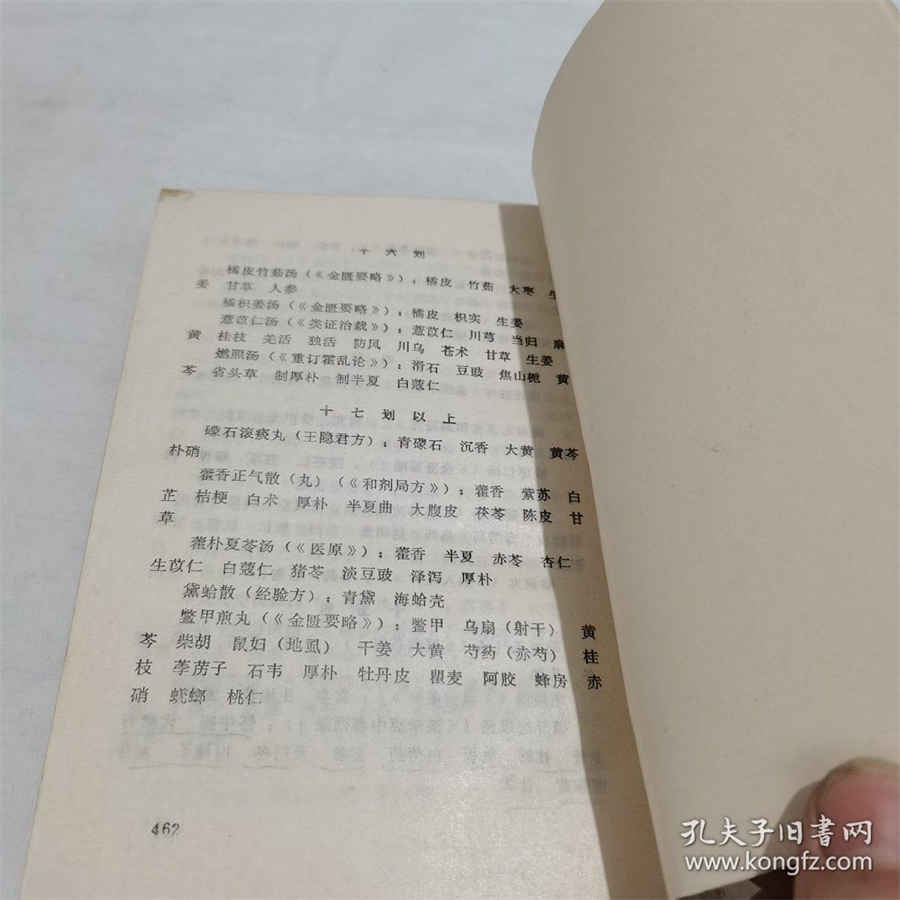 十六划
橘皮竹茹汤（《金匮要略》）：橘皮 竹茹 大枣 生
姜 甘草 人参
橘枳姜汤（《金匮要略》）：橘皮 枳实 生姜
薏苡仁汤（《类证治裁》）：薏苡仁 川芎 当归 麻
黄 桂枝 羌活 独活 防风 川乌 苍术 甘草 生姜
燃照汤（《重订霍乱论》）：滑石 豆豉 焦山栀 黄
芩 省头草 制厚朴 制半夏 白蔻仁
十七划以上
礞石滚痰丸（王隐君方）：青礞石 沉香 大黄 黄芩
朴硝
藿香正气散（丸）（《和剂局方》）：藿香 紫苏 白
芷 桔梗 白术 厚朴 半夏曲 大腹皮 茯苓 陈皮 甘
草
藿朴夏苓汤（《医原》）：藿香 半夏 赤苓 杏仁
生苡仁 白蔻仁 猪苓 淡豆豉 泽泻 厚朴
黛蛤散（经验方）：青黛 海蛤壳
鳖甲煎丸（《金匮要略》）：鳖甲 乌扇（射干） 黄
芩 柴胡 鼠妇（地虱） 干姜 大黄 芍药（赤芍） 桂
枝 葶苈子 石韦 厚朴 牡丹皮 瞿麦 阿胶 蜂房 赤
硝 蜣螂 桃仁
462
孔夫子旧书网
www.kongfz.com